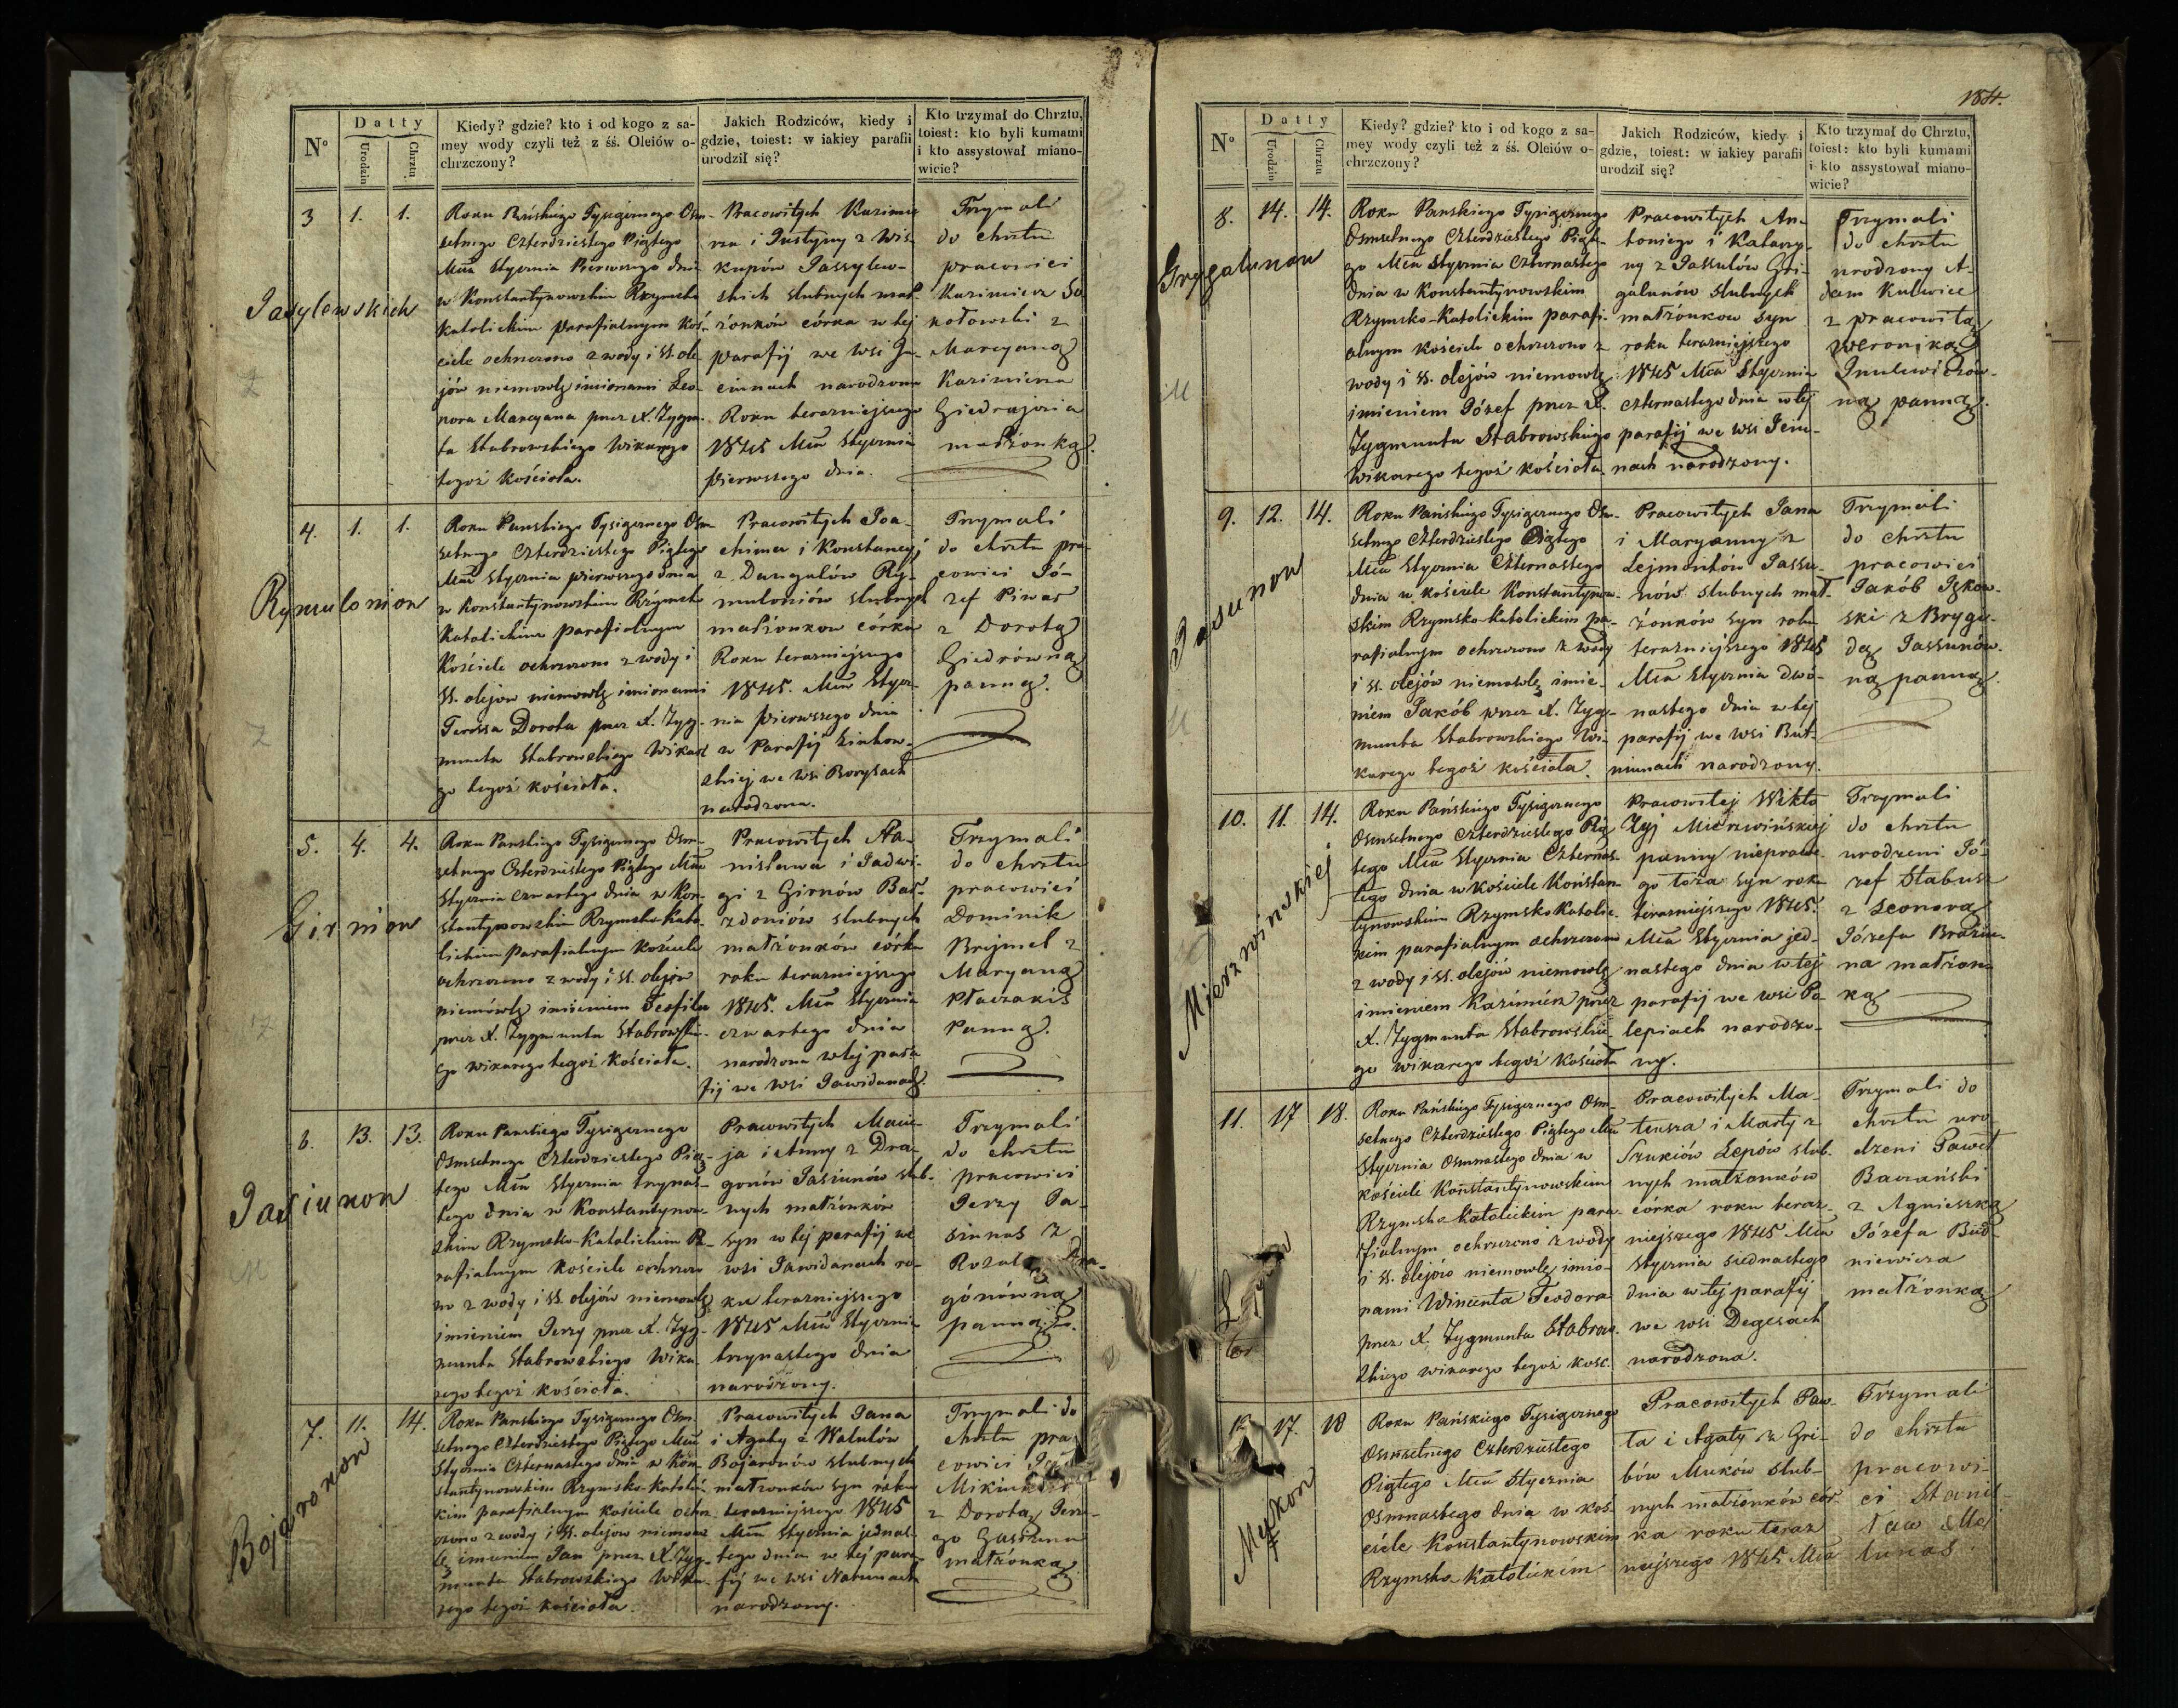 N°
Datty
Urodzin
Chrztu
Kiedy? gdzie? kto i od kogo z sa-
mey wody czyli też z śś. Oleiów o-
chrzczony?
Jakich Rodziców, kiedy i
gdzie, toiest: w iakiey parafii
urodził się?
Kto trzymał do Chrztu,
toiest: kto byli kumami
i kto assystował miano-
wicie?
3
1.
1.
Roku Pańskiego Tysiącznego Osm-
setnego Czterdziestego Piątego
Mca Stycznia Pierwszego dnia
w Konstantynowskim Rzymsko
Katolickim parafialnym Koś-
ciele ochrzczono z wody i SS. ole-
jów niemowlę imionami Leo-
nora Maryana przez X. Zygm.
ta Stabrowskiego Wikarego
tegoż Kościoła.
Pracowitych Kazimie
rza i Justyny z Wis-
kupów Jassylew-
skich ślubnych mał-
żonków córka w tej
parafij we wsi
narodzona
Roku terazniejszego
1845 Mca Stycznia
pierwszego dnia.
Trzymali
do chrztu
pracowici
Kazimierz So
kołowski z
Maryaną
Kazimierza
małżonką.
4.
1.
1.
Roku Pańskiego Tysiącznego Osm
setnego Czterdziestego Piątego
Mca Stycznia pierwszego dnia
w Konstantynowskim Rzymsko
Katolickim parafialnym
Kościele ochrzczono z wody i
SS. olejow niemowlę imionami
Teressa Dorota przez X. Zyg-
munta Stabrowskiego Wikare
go tegoż kościoła.
Pracowitych Joa-
chima i Konstancyj
z Dangulów Ry-
muloniów ślubnych
małżonkow córka
Roku terazniejszego
1845. Mca Stycz-
nia pierwszego dnia
w Parafij
skiej we wsi Borysach
narodzona.
Trzymali
do chrztu pra-
cowici Jó-
zef Piwar
z Dorotą
Giedrówną
panną.
5.
4.
4.
Roku Pańskiego Tysiącznego Osm-
setnego Czterdziestego Piątego Mca
Stycznia czwartego dnia w Kon-
stantynowskim Rzymsko-Kato-
lickim Parafialnym Kościele
ochrzczono z wody i SS. olejow
niemowlę imieniem Teofila
przez X. Zygmunta Stabrowski-
ego wikarego tegoż Kościoła.
Pracowitych Sta-
nisława i Jadwi-
gi z Girnów
ślubnych
małżonków córka
roku terazniejszego
1845. Mca Stycznia
czwartego dnia
narodzona w tej para
fij we wsi Dawidanach.
Trzymali
do chrztu
pracowici
Dominik
z
Maryaną
Panną.
6.
13.
13.
Roku Pańskiego Tysiącznego
Osmsetnego Czterdziestego Pią-
tego Mca Stycznia trzynas-
tego dnia w Konstantynow-
skim Rzymsko-Katolickim Pa-
rafialnym Kosciele ochrzczo
no z wody i SS. olejów niemowlę
imieniem Jerzy przez X. Zyg-
munta Stabrowskiego Wika
rego tegoż kościoła.
Pracowitych Macie-
ja i Anny z Dra-
gonów Jasiunów ślub-
nych małżonków
syn w tej parafij we
wsi Dawidanach ro-
ku terazniejszego
1845 Mca Stycznia
trzynastego dnia
narodzony.
Trzymali
do chrztu
pracowici
Jerzy Ja-
siunas z
Dra-
gónówną
panną.
7.
11.
14.
Roku Pańskiego Tysiącznego Osm-
setnego Czterdziestego Piątego Mca
Stycznia Czternastego dnia w Kon-
stantynowskim Rzymsko-Katolic-
kim parafialnym kościele ochrz
czono z wody i SS. olejow niemow
lę imieniem Jan przez X. Zyg-
munta Stabrowskiego Wika-
rego tegoż kościoła.
Pracowitych Jana
i Agaty z Walulów
Bojarunów ślubnych
małżonków syn roku
terazniejszego 1845
Mca Stycznia jednas-
tego dnia w tej para-
fij we wsi
narodzony.
Trzymali do
chrztu pra-
cowici
z Dorotą Jerze-
go
małżonką.
Jasylewskich
Rymulonion
Girnion
Jasiunow
Bojarunow
184.
N°
Datty
Urodzin
Chrztu
Kiedy? gdzie? kto i od kogo z sa-
mey wody czyli też z śś. Oleiów o-
chrzczony?
Jakich Rodziców, kiedy i
gdzie, toiest: w iakiey parafii
urodził się?
Kto trzymał do Chrztu,
toiest: kto byli kumami
i kto assystował miano-
wicie?
8.
14.
14.
Roku Pańskiego Tysiącznego
Osmsetnego Czterdziestego Piąte-
go Mca Stycznia Czternastego
dnia w Konstantynowskim
Rzymsko-Katolickim parafi-
alnym kościele ochrzczono z
wody i SS. olejów niemowlę
imieniem Józef przez X.
Zygmunta Stabrowskiego
Wikarego tegoż kościoła.
Pracowitych An-
toniego i Katarzy-
ny z Jassulów Gri-
galunów ślubnych
małżonkow syn
roku terazniejszego
1845 Mca Stycznia
czternastego dnia w tej
parafij we wsi
narodzony.
Trzymali
do chrztu
urodzony A-
dam Kulwiec
z pracowitą
Weroniką
ną panną.
9.
12.
14.
Roku Pańskiego Tysiącznego Osm-
setnego Czterdziestego Piątego
Mca Stycznia Czternastego
dnia w kościele Konstantynow-
skim Rzymsko-katolickim pa-
rafialnym ochrzczono z wody
i SS. olejów niemowlę imie-
niem Jakób przez X. Zyg-
munta Stabrowskiego Wi-
karego tegoż kościoła.
Pracowitych Jana
i Maryanny z
Lejmontów Jassu-
nów ślubnych mał-
żonków syn roku
terazniejszego 1845
Mca Stycznia dwó-
nastego dnia w tej
parafij we wsi But-
niunach narodzony.
Trzymali
do chrztu
pracowici
Jakób
ski z Brygi-
dą Jassunów-
ną panną.
10.
11.
14.
Roku Pańskiego Tysiącznego
Osmsetnego Czterdziestego Pią
tego Mca Stycznia Czternas-
tego dnia w kościele Konstan-
tynowskim Rzymsko Katolic-
kim parafialnym ochrzczono
z wody i SS. olejów niemowlę
imieniem Kazimierz przez
X. Zygmunta Stabrowskie
go wikarego tegoż kościoła
Pracowitej Wikto
ryj Mierzwińskiej
panny nieprawe-
go łoża syn roku
terazniejszego 1845.
Mca Stycznia jed-
nastego dnia w tej
parafij we wsi Po-
lepiach narodzo-
ny.
Trzymali
do chrztu
urodzeni Jó-
zef Stabusz
z Leonorą
Józefa
na małżon-
ką
11.
17
18.
Roku Pańskiego Tysiącznego Osm-
setnego Czterdziestego Piątego Mca
Stycznia Osmnastego dnia w
kościele Konstantynowskim
Rzymsko Katolickim para-
fialnym ochrzczono z wody
i SS. olejów niemowlę imio-
nami Wincenta Teodora
przez X. Zygmunta Stabrow-
skiego wikarego tegoż kośc.
Pracowitych Ma-
teusza i Marty z
Szukiów Lepów ślub-
nych małżonków
córka roku teraz-
niejszego 1845 Mca
Stycznia siednastego
dnia w tej parafij
we wsi Degesach
narodzona.
Trzymali do
chrztu uro
dzeni Paweł
Baczański
z Agnieszką
Józefa Bud-
niewicza
małżonką
12.
17.
18
Roku Pańskiego Tysiącznego
Osmsetnego Czterdziestego
Piątego Mca Stycznia
Osmnastego dnia w koś-
ciele Konstantynowskim
Rzymsko Katolickim
Pracowitych Paw-
ła i Agaty z Gri-
bów Muków ślub-
nych małżonków cór-
ka roku teraz
niejszego 1845 Mca
Trzymali
do chrztu
pracowi-
ci Stanis-
ław Ma
lunas
Grygalunow
Jasunow
Mierzwinskiej